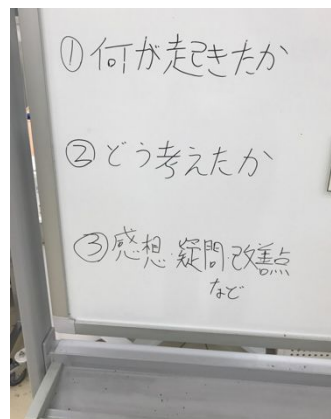 ①何が起きたか
②どう考えたか
③感想・疑問・改善点
など